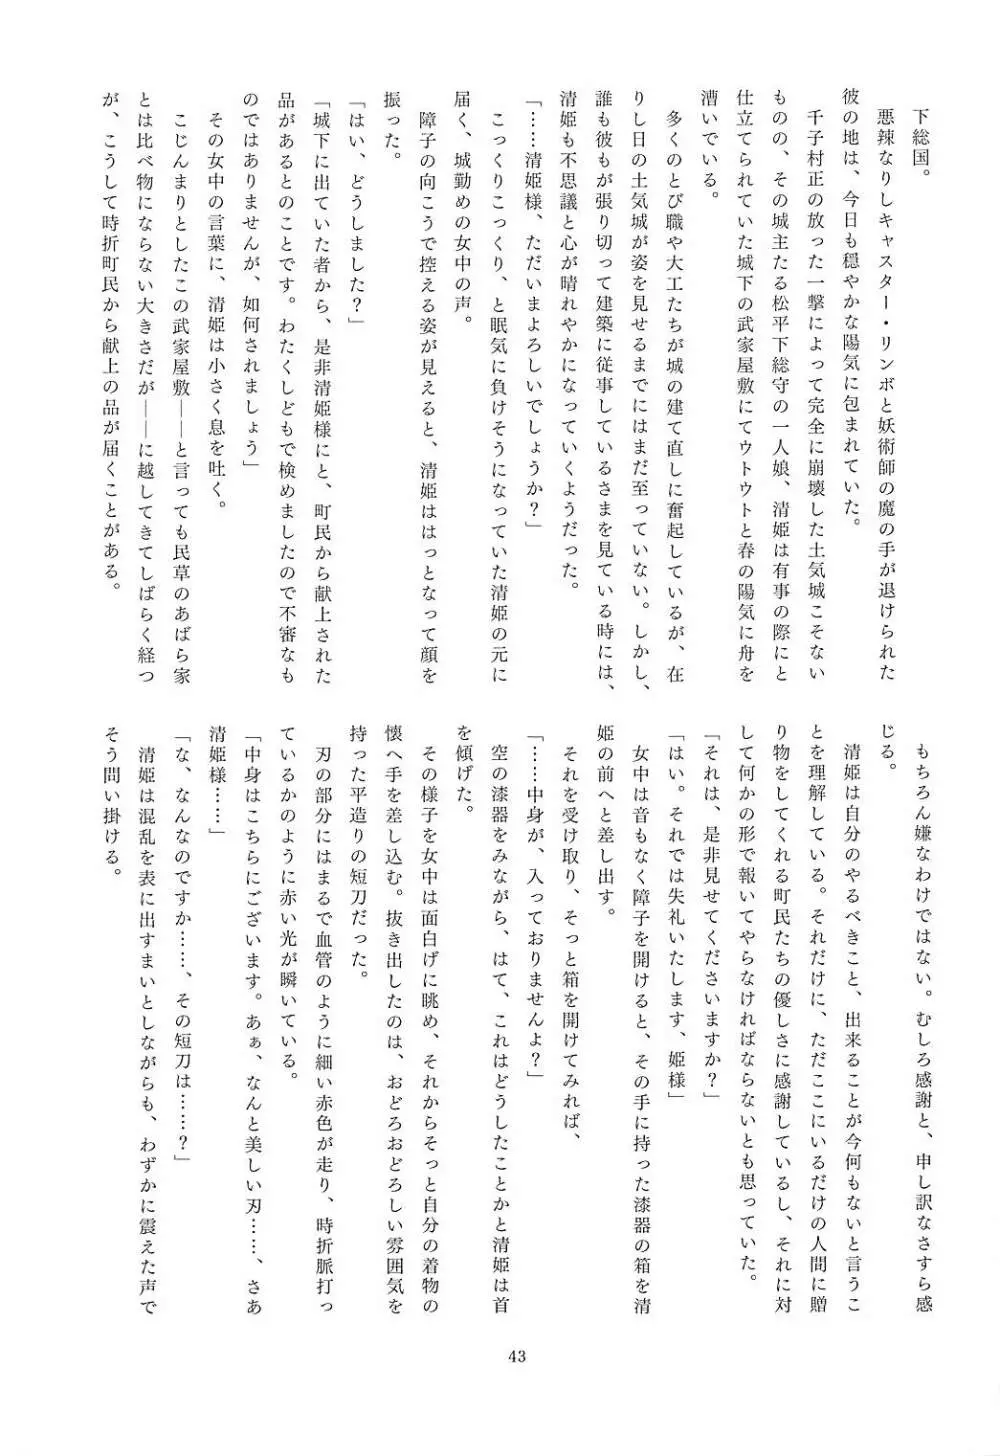 下総国。
悪辣なりしキャスター・リンボと妖術師の魔の手が退けられた
彼の地は、今日も穏やかな陽気に包まれていた。
千子村正の放った一撃によって完全に崩壊した土気城こそない
ものの、その城主たる松平下総守の一人娘、清姫は有事の際にと
仕立てられていた城下の武家屋敷にてウトウトと春の陽気に舟を
漕いでいる。
多くのとび職や大工たちが城の建て直しに奮起しているが、在
りし日の土気城が姿を見せるまでにはまだ至っていない。しかし、
誰も彼もが張り切って建築に従事しているさまを見ている時には、
清姫も不思議と心が晴れやかになっていくようだった。
「……清姫様、ただいまよろしいでしょうか？」
こっくりこっくり、と眠気に負けそうになっていた清姫の元に
届く、城勤めの女中の声。
障子の向こうで控える姿が見えると、清姫ははっとなって顔を
振った。
「はい、どうしました？」
「城下に出ていた者から、是非清姫様にと、町民から献上された
品があるとのことです。わたくしどもで検めましたので不審なも
のではありませんが、如何されましょう」
その女中の言葉に、清姫は小さく息を吐く。
こじんまりとしたこの武家屋敷――と言っても民草のあばら家
とは比べ物にならない大きさだが――に越してきてしばらく経つ
が、こうして時折町民から献上の品が届くことがある。
もちろん嫌なわけではない。むしろ感謝と、申し訳なさすら感
じる。
清姫は自分のやるべきこと、出来ることが今何もないと言うこ
とを理解している。それだけに、ただここにいるだけの人間に贈
り物をしてくれる町民たちの優しさに感謝しているし、それに対
して何かの形で報いてやらなければならないとも思っていた。
「それは、是非見せてくださいますか？」
「はい。それでは失礼いたします、姫様」
女中は音もなく障子を開けると、その手に持った漆器の箱を清
姫の前へと差し出す。
それを受け取り、そっと箱を開けてみれば、
「……中身が、入っておりませんよ？」
空の漆器をみながら、はて、これはどうしたことかと清姫は首
を傾げた。
その様子を女中は面白げに眺め、それからそっと自分の着物の
懐へ手を差し込む。抜き出したのは、おどろおどろしい雰囲気を
持った平造りの短刀だった。
刃の部分にはまるで血管のように細い赤色が走り、時折脈打っ
ているかのように赤い光が瞬いている。
「中身はこちらにございます。あぁ、なんと美しい刃……、さあ
清姫様……」
「な、なんなのですか……、その短刀は……？」
清姫は混乱を表に出すまいとしながらも、わずかに震えた声で
そう問い掛ける。
43